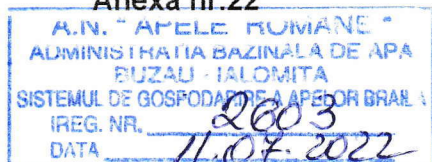 Anexa nr.22
A.N. "APELE ROMANE"
ADMINISTRATIA BAZINALA DE APA
BUZAU - IALOMITA
SISTEMUL DE GOSPODARIRE A APELOR BRAILA
IREG. NR. 2603
DATA 11.07.2022